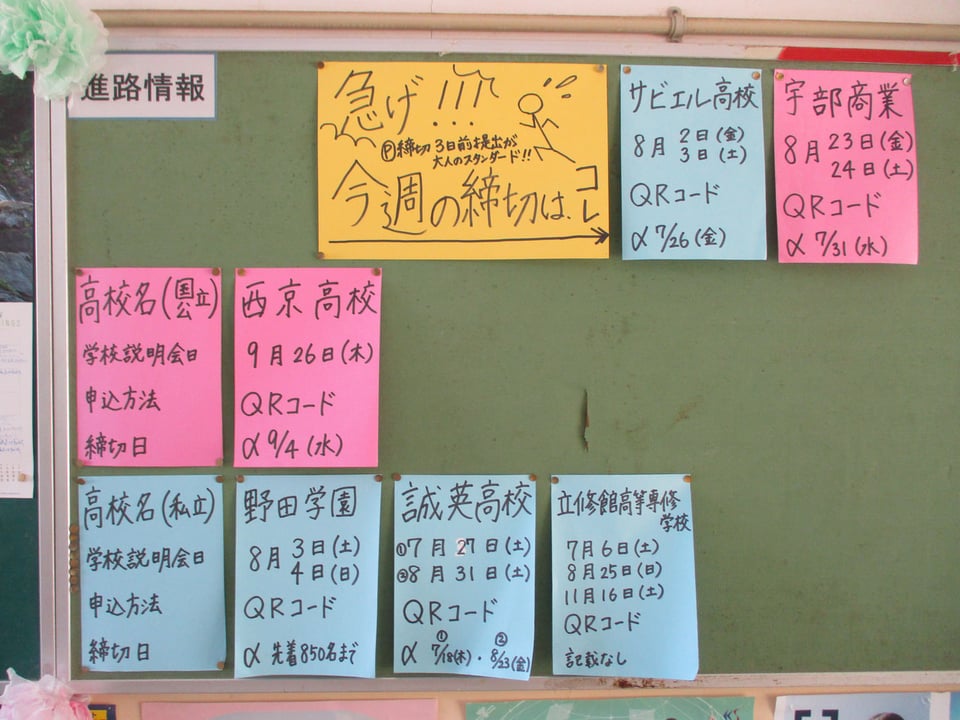 進路情報
急げ!!!
Ⓟ締切3日前提出が
大人のスタンダード!!
今週の締切は、コレ
サビエル高校
8月 2日(金)
3日(土)
QRコード
〆 7/26(金)
宇部商業
8月 23日(金)
24日(土)
QRコード
〆 7/31(水)
高校名(国公立)
学校説明会日
申込方法
締切日
西京高校
9月26日(木)
QRコード
〆 9/4(水)
高校名(私立)
学校説明会日
申込方法
締切日
野田学園
8月 3日(土)
4日(日)
QRコード
〆 先着850名まで
誠英高校
①7月27日(土)
②8月31日(土)
QRコード
〆 ①7/18(木)・②8/23(金)
立修館高等専修
学校
7月6日(土)
8月25日(日)
11月16日(土)
QRコード
記載なし